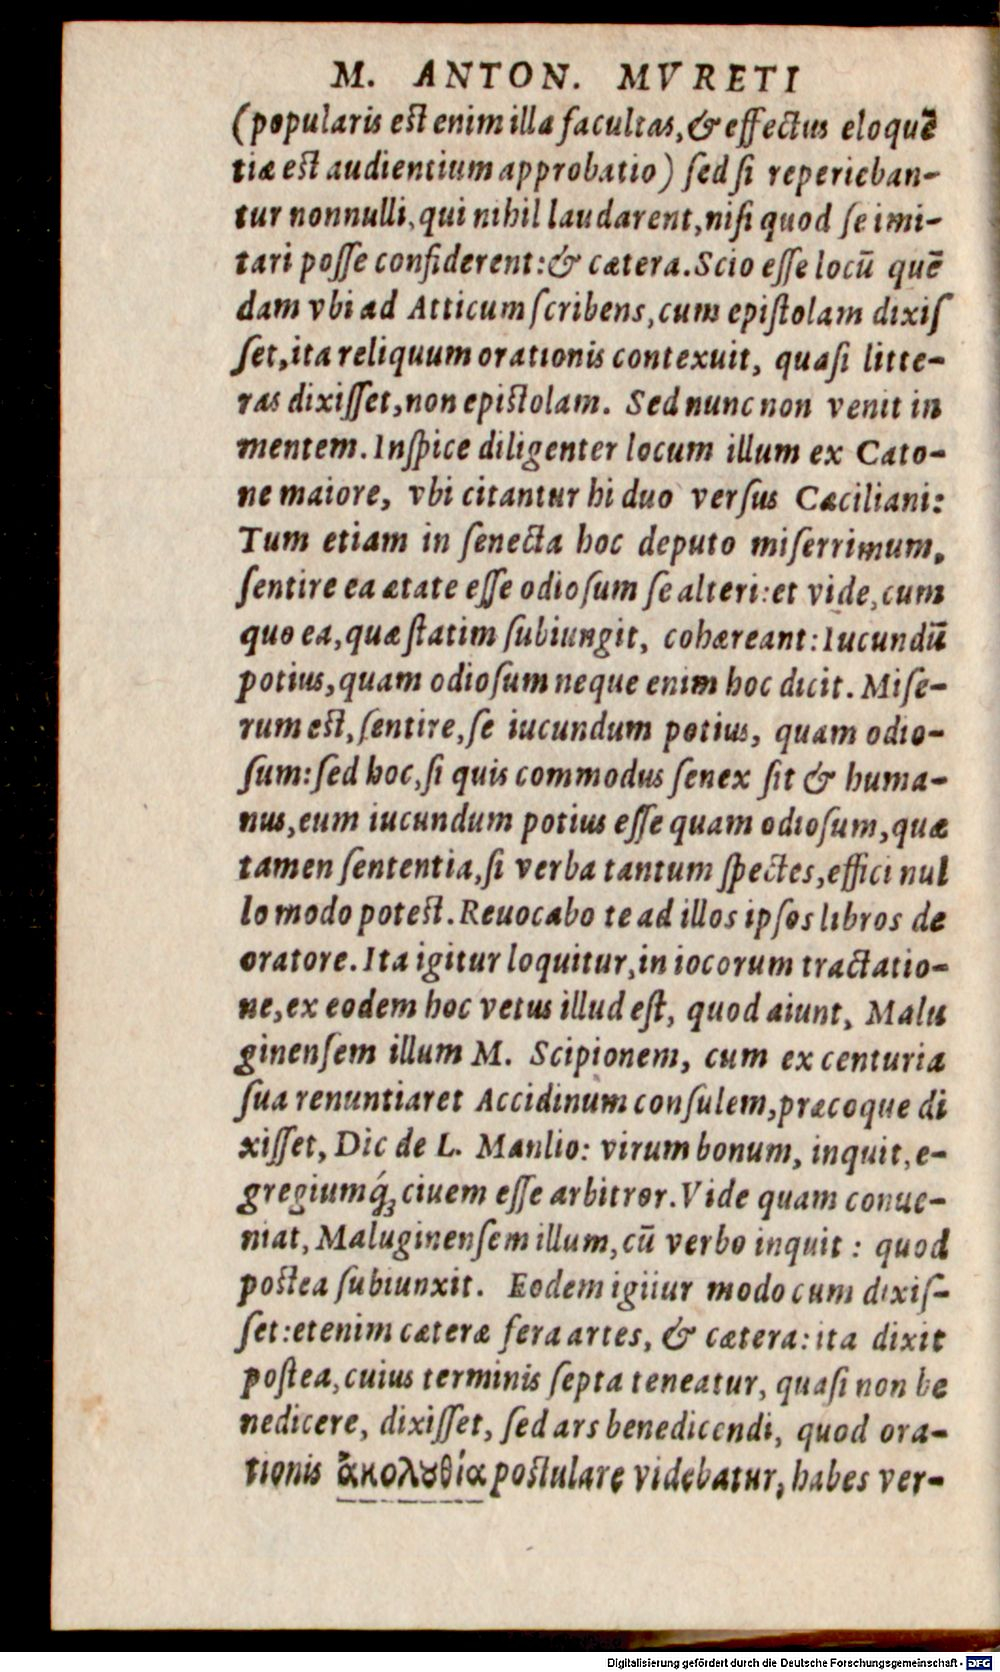 M. ANTON. MVRETI
(popularis est enim illa facultas, & effectus eloquẽ
tiæ est audientium approbatio) sed si reperieban-
tur nonnulli, qui nihil laudarent, nisi quod se imi-
tari posse confiderent: & cætera. Scio esse locũ quẽ
dam vbi ad Atticum scribens, cum epistolam dixis
set, ita reliquum orationis contexuit, quasi litte-
ras dixisset, non epistolam. Sed nunc non venit in
mentem. Inspice diligenter locum illum ex Cato-
ne maiore, vbi citantur hi duo versus Cæciliani:
Tum etiam in senecta hoc deputo miserrimum,
sentire ea ætate esse odiosum se alteri: et vide, cum
quo ea, quæ statim subiungit, cohæreant: Iucundũ
potius, quam odiosum neque enim hoc dicit. Mise-
rum est, sentire, se iucundum potius, quam odio-
sum: sed hoc, si quis commodus senex sit & huma-
nus, eum iucundum potius esse quam odiosum, quæ
tamen sententia, si verba tantum spectes, effici nul
lo modo potest. Reuocabo te ad illos ipsos libros de
oratore. Ita igitur loquitur, in iocorum tractatio-
ne, ex eodem hoc vetus illud est, quod aiunt, Malu
ginensem illum M. Scipionem, cum ex centuria
sua renuntiaret Accidinum consulem, præcoque di
xisset, Dic de L. Manlio: virum bonum, inquit, e-
gregiumq́; ciuem esse arbitror. Vide quam conue-
niat, Maluginensem illum, cũ verbo inquit: quod
postea subiunxit. Eodem igiiur modo cum dixis-
set: etenim cæteræ fera artes, & cætera: ita dixit
postea, cuius terminis septa teneatur, quasi non be
nedicere, dixisset, sed ars benedicendi, quod ora-
tionis ἀκολȣθία postulare videbatur, habes ver-
Digitalisierung gefördert durch die Deutsche Forschungsgemeinschaft - DFG